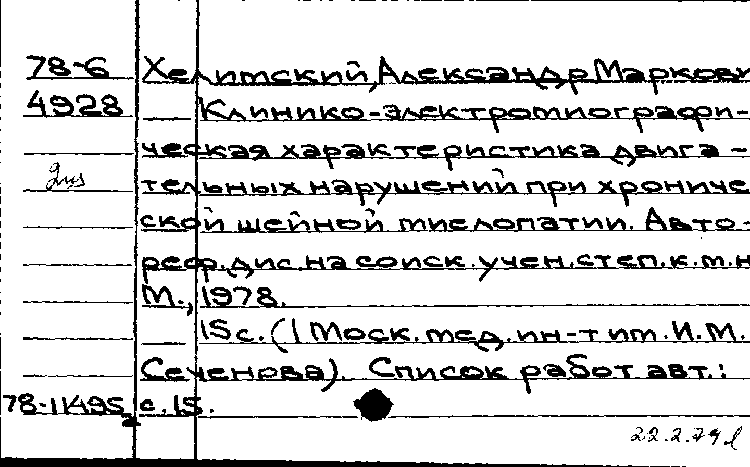 78-6 Хелимский, Александр Маркови
4928 Клинико-электромиографи-
ческая характеристика двига-
тельных нарушений при хрониче
ской шейной миелопатии. Авто-
реф. дис. на соиск. учен. степ. к.м.н
М., 1978.
15с. (I Моск. мед. ин-т им. И.М.
Сеченова). Список работ авт.:
78-11495 с. 15.
22.2.79